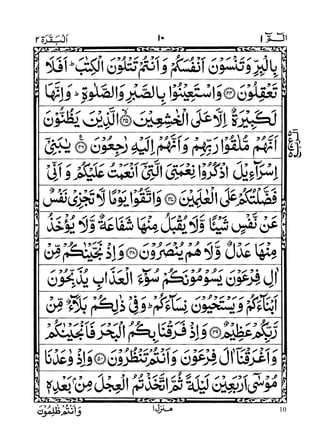 الٓمّٓ ١ ١٠ اَلْبَقَرَة ٢
بِالْبِرِّ وَتَنْسَوْنَ اَنْفُسَكُمْ وَاَنْتُمْ تَتْلُوْنَ الْكِتٰبَ ؕ اَفَلَا
تَعْقِلُوْنَ ﴿۴۴﴾ وَاسْتَعِيْنُوْا بِالصَّبْرِ وَالصَّلٰوةِ ؕ وَاِنَّهَا
لَكَبِيْرَةٌ اِلَّا عَلَى الْخٰشِعِيْنَ ﴿۴۵﴾ الَّذِيْنَ يَظُنُّوْنَ
اَنَّهُمْ مُّلٰقُوْا رَبِّهِمْ وَاَنَّهُمْ اِلَيْهِ رٰجِعُوْنَ ﴿۴۶﴾ يٰبَنِيْٓ
اِسْرَآءِيْلَ اذْكُرُوْا نِعْمَتِيَ الَّتِيْٓ اَنْعَمْتُ عَلَيْكُمْ وَاَنِّيْ
فَضَّلْتُكُمْ عَلَى الْعٰلَمِيْنَ ﴿۴۷﴾ وَاتَّقُوْا يَوْمًا لَّا تَجْزِيْ نَفْسٌ
عَنْ نَّفْسٍ شَيْئًا وَّلَا يُقْبَلُ مِنْهَا شَفَاعَةٌ وَّلَا يُؤْخَذُ
مِنْهَا عَدْلٌ وَّلَا هُمْ يُنْصَرُوْنَ ﴿۴۸﴾ وَاِذْ نَجَّيْنٰكُمْ مِّنْ
اٰلِ فِرْعَوْنَ يَسُوْمُوْنَكُمْ سُوْٓءَ الْعَذَابِ يُذَبِّحُوْنَ
اَبْنَآءَكُمْ وَيَسْتَحْيُوْنَ نِسَآءَكُمْ ؕ وَفِيْ ذٰلِكُمْ بَلَآءٌ مِّنْ
رَّبِّكُمْ عَظِيْمٌ ﴿۴۹﴾ وَاِذْ فَرَقْنَا بِكُمُ الْبَحْرَ فَاَنْجَيْنٰكُمْ
وَاَغْرَقْنَآ اٰلَ فِرْعَوْنَ وَاَنْتُمْ تَنْظُرُوْنَ ﴿۵۰﴾ وَاِذْ وٰعَدْنَا
مُوْسٰٓى اَرْبَعِيْنَ لَيْلَةً ثُمَّ اتَّخَذْتُمُ الْعِجْلَ مِنْۢ بَعْدِهٖ
وَاَنْتُمْ ظٰلِمُوْنَ منزل ١ 10